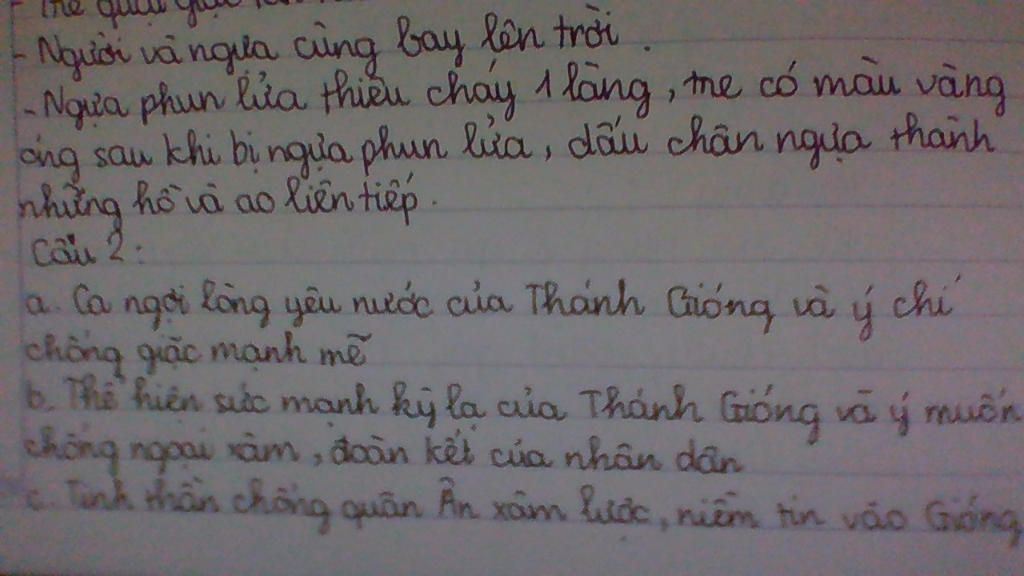 - Người và ngựa cùng bay lên trời.
- Ngựa phun lửa thiêu cháy 1 làng, tre có màu vàng
óng sau khi bị ngựa phun lửa, dấu chân ngựa thành
những hồ và ao liên tiếp.
Câu 2:
a. Ca ngợi lòng yêu nước của Thánh Gióng và ý chí
chống giặc mạnh mẽ
b. Thể hiện sức mạnh kỳ lạ của Thánh Gióng và ý muốn
chống ngoại xâm, đoàn kết của nhân dân
c. Tinh thần chống quân Ân xâm lược, niềm tin vào Gióng